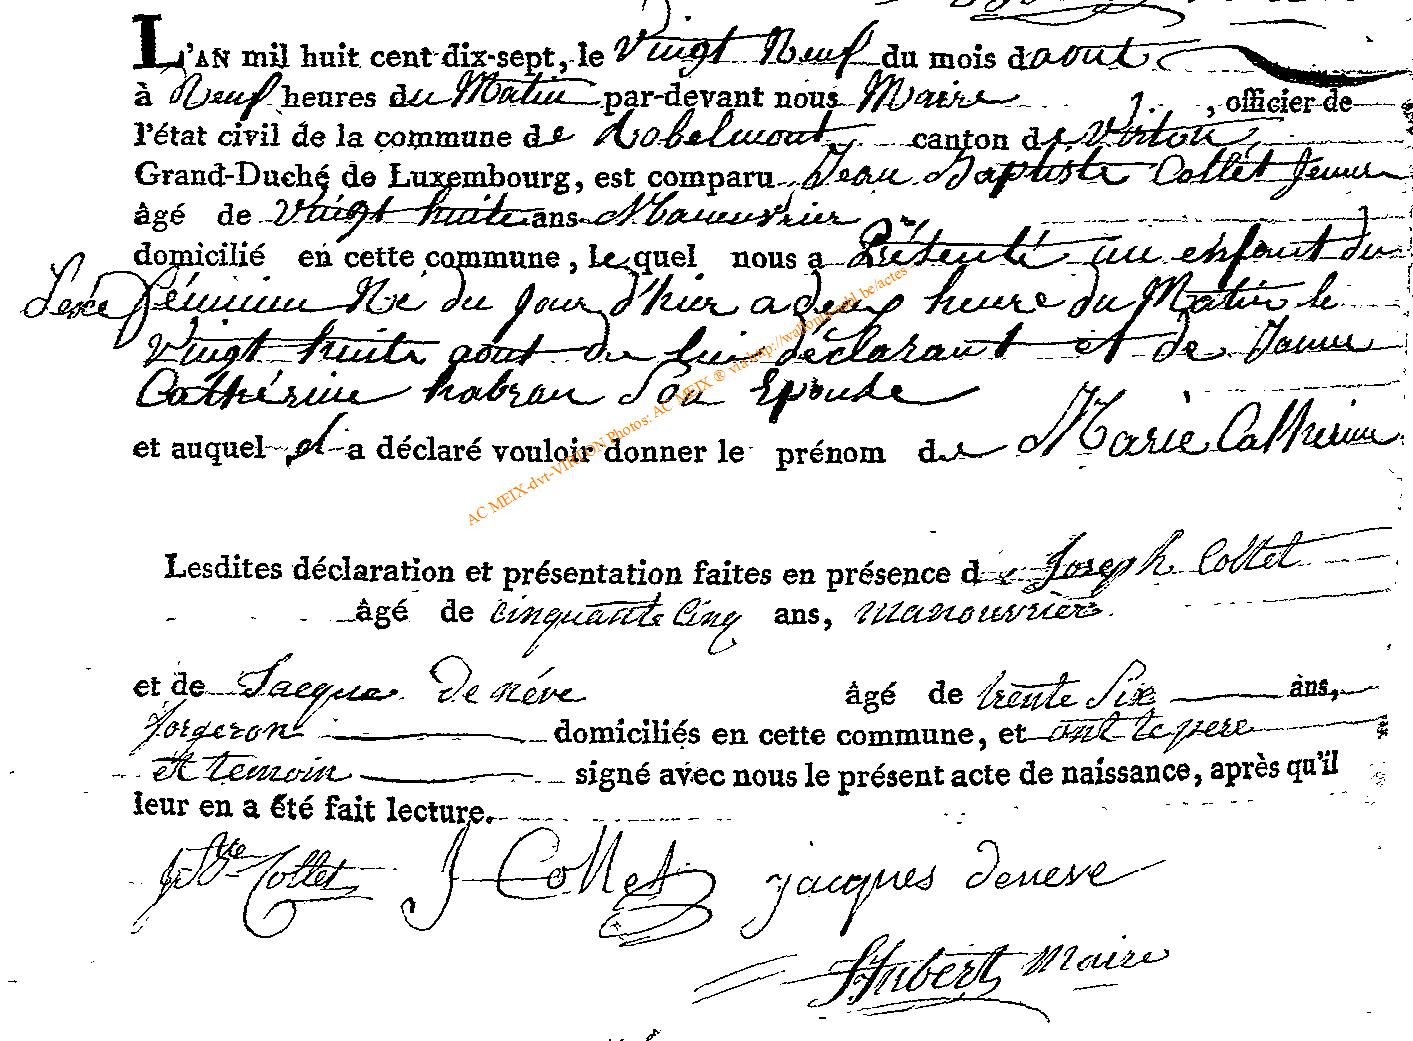 L'AN mil huit cent dix-sept, le Vingt Neuf du mois d'aout
à Neuf heures du Matin par-devant nous Maire, officier de
l'état civil de la commune de Robelmont canton de Virton,
Grand-Duché de Luxembourg, est comparu Jean Baptiste Collet Jeune
âgé de Vingt huite ans Manouvrier
domicilié en cette commune, lequel nous a Présenté un enfant du
Sexe féminin Né du Jour d'hier a deux heure du Matin le
Vingt huite aout de lui déclarant et de Janne
Cathérine habran Son Epouse
et auquel il a déclaré vouloir donner le prénom de Marie Catherine
AC MEIX-dvt-VIRTON Photos: AC MEIX ® via http://wallonia-asbl.be/actes
Lesdites déclaration et présentation faites en présence de Joseph Collet
âgé de cinquante cinq ans, manouvrier
et de Jacque de néve âgé de trente Six ans,
forgeron domiciliés en cette commune, et ont le pere
et temoin signé avec nous le présent acte de naissance, après qu'il
leur en a été fait lecture.
JBte Collet J Collet jacques deneve
Hubert Maire